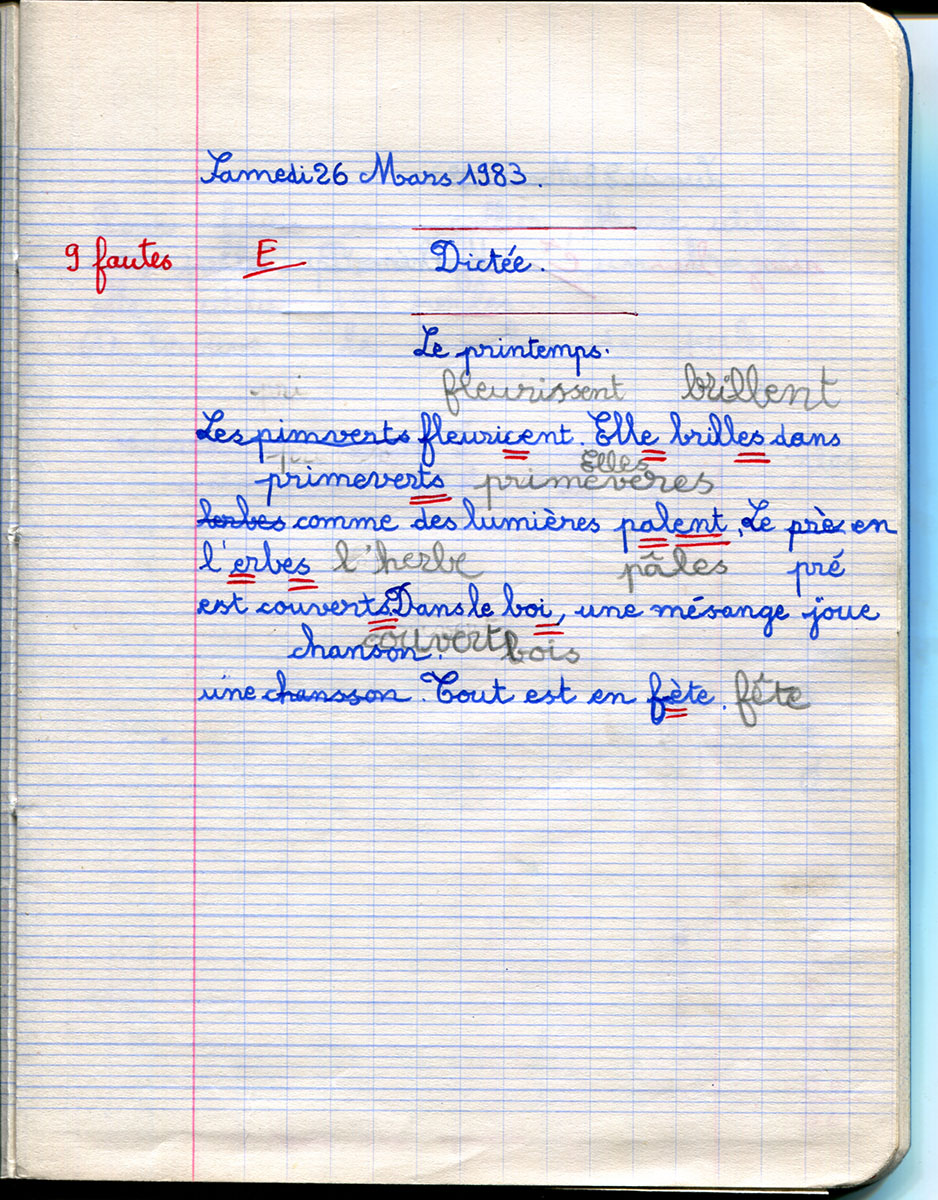 Samedi 26 Mars 1983.
9 fautes E Dictée.
Le printemps.
fleurissent brillent
Les pimverts fleuricent. Elle brilles dans
Elles
primeverts primevères
herbes comme des lumières palent. Le près en
l'erbes l'herbe pâles pré
est couverts. Dans le boi, une mésange joue
chanson. couvert bois
une chansson. Tout est en fète. fête